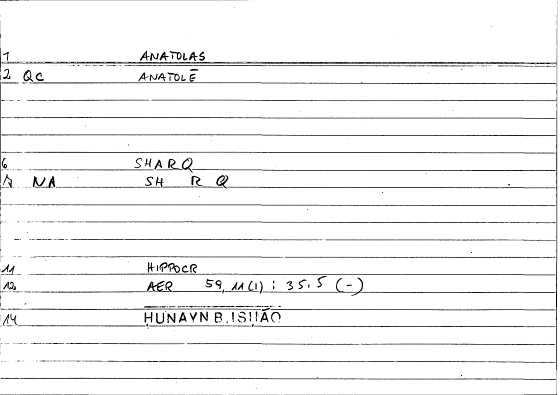 1 ANATOLAS
2 QC ANATOLĒ
6 SHARQ
7 NA SH R Q
11 HIPPOCR
12 AER 59,11(1) : 35.5 (-)
14 ḤUNAYN B. ISḤĀQ